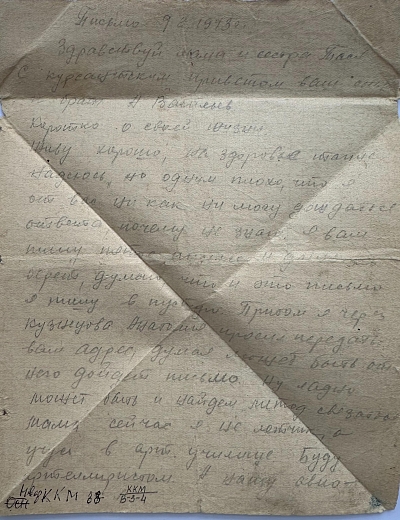 Письмо 9 2 1943 г.
Здравствуй мама и сестра Тася
С курсантским приветом ваш сын
и брат А Васильев
Коротко о своей жизни
Живу хорошо, на здоровье
надеюсь, но одним плохо, что я
от вас ни как ни могу дождаться
ответа почему не знаю. Я вам
пишу
думаю что и это письмо
я пишу в пустую. Притом я через
Кузнецова Анатолия просил передать
вам адрес, думал может быть от
него дойдет письмо. Ну ладно
может быть и найдем метод связаться
Мама, сейчас я не летчик, а
учусь в арт. училище Буду
артиллеристом. В нашу авио-
ККМ
ККМ